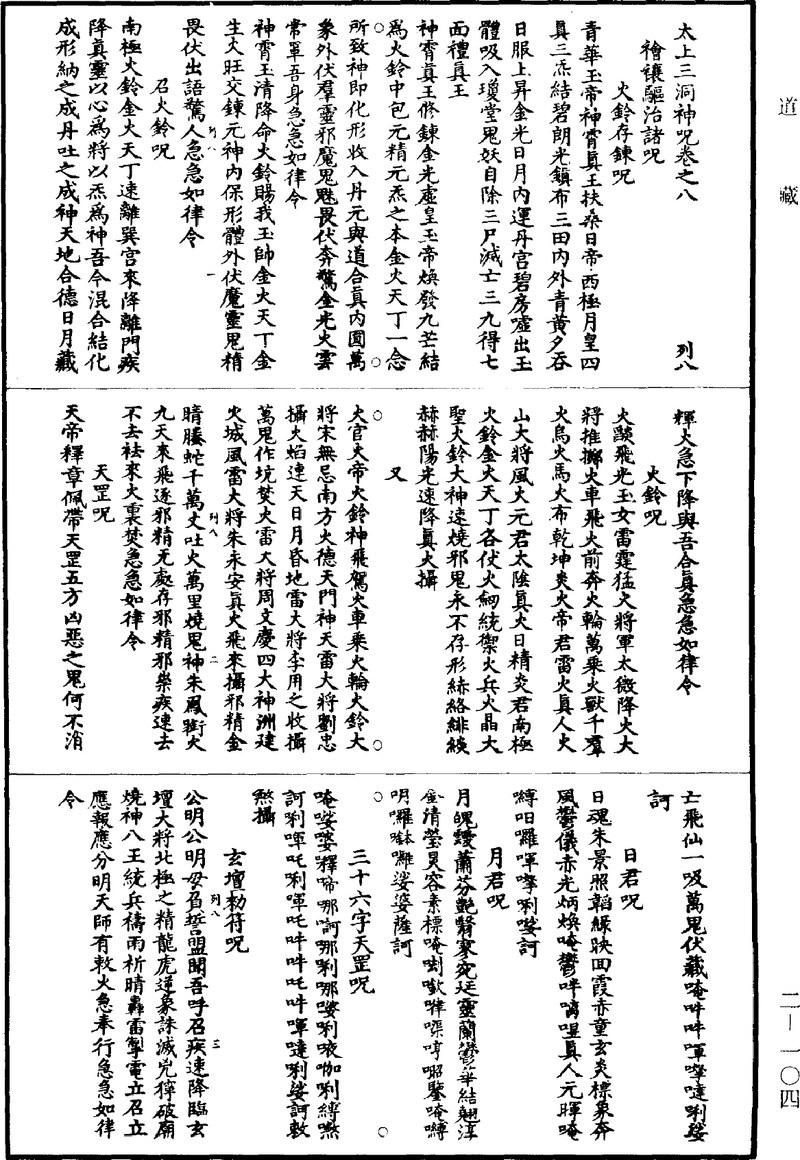 道藏
太上三洞神呪卷之八　列八
禬禳驅治諸呪
火鈴存鍊呪
青華玉帝神霄真王扶桑日帝西極月皇四
真三炁結碧朗光鎮布三田内外青黄夕吞
日服上昇金光日月内運丹宫碧房噓出玉
體吸入瓊堂鬼妖自除三尸滅亡三九得七
面禮真王
神霄真王修鍊金光虛皇玉帝煥發九芒結
為火鈴中包元精元炁之本金火天丁一念
所致神即化形收入丹元與道合真内圓萬
象外伏羣靈邪魔鬼魅畏伏奔驚金光火雲
常罩吾身急急如律令
神霄玉清降命火鈴賜我玉帥金火天丁金
生火旺交鍊元神内保形體外伏魔靈鬼精
畏伏出語驚人急急如律令
列八　一
召火鈴呪
南極火鈴金火天丁速離巽宫來降離門疾
降真靈以心為將以炁為神吾今混合結化
成形納之成丹吐之成神天地合德日月藏
輝火急下降與吾合真急急如律令
火鈴呪
火燄飛光玉女雷霆猛火將軍太微降火大
將推擲火車飛火前奔火輪萬乘火獸千羣
火烏火馬火布乾坤炎火帝君雷火真人火
山大將風火元君太陰真火日精炎君南極
火鈴金火天丁各仗火劒統禦火兵火晶大
聖火鈴大神速燒邪鬼永不存形絲絡緋綾
赫赫陽光速降真火攝
又
火官火帝火鈴神飛駕火車乘火輪火鈴大
將宋無忌南方火德天門神天雷大將劉忠
攝火焰連天日月昏地雷大將李用之收攝
萬鬼作坑焚火雷大將周文慶四大神洲建
火城風雷大將朱永安真火飛來攝邪精金
列八　二
睛騰蛇千萬丈吐火萬里燒鬼神朱鳳銜火
九天來飛逐邪精无處存邪精邪祟疾速去
不去袪來火裏焚急急如律令
天罡呪
天帝釋章佩帶天罡五方凶惡之鬼何不消
亡飛仙一吸萬鬼伏藏唵吽吽㖇㗚噠唎娑
訶
日君呪
日魂朱景照韜緑映回霞赤童玄炎標象奔
風鬱儀赤光炳煥唵鬱吽嘀哩真人元暉唵
縛呬囉㖇㗚唎娑訶
月君呪
月魄曖蕭芬艷翳寥宛廷靈蘭鬱華結翹淳
金清瑩炅容素標唵
明囉鉢囉娑婆薩訶
三十六字天罡呪
唵娑婆釋帝那訶那唎那娑唎唵咖唎縛
訶唎㖇吒唎㖇吒吽吽吒吽㖇噠唎娑訶敕
煞攝
玄壇勅符呪
列八　三
公明公明毋負誓盟聞吾呼召疾速降臨玄
壇大將北極之精龍虎運象誅滅兇獰破廟
燒神八王統兵禱雨祈晴轟雷掣電立召立
應報應分明天師有敕火急奉行急急如律
令
二—一〇四